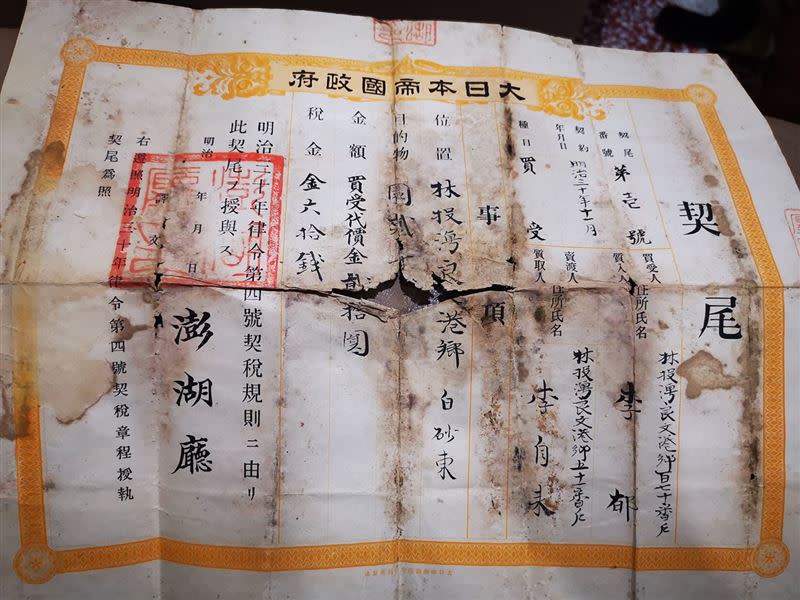 大日本帝國政府
契尾
契尾番號 第壱號
契約年月日 明治三十年十一月
種目 買受
買受人 質入人 住所氏名
林投灣良文港鄉百七十番戶
李郁
賣渡人 質取人 住所氏名
林投灣良文港鄉五十一番戶
李自未
事項
位置 林投灣良 港鄉 白砂東
目的物 園
金額 買受代價金貳拾圓
稅金 金六拾錢
明治三十年律令第四號契稅規則ニ由リ
此契尾ヲ授與ス
明治 年 月 日
澎湖廳
譯文
右遵照明治三十年律令第四號契稅章程授執
契尾為照